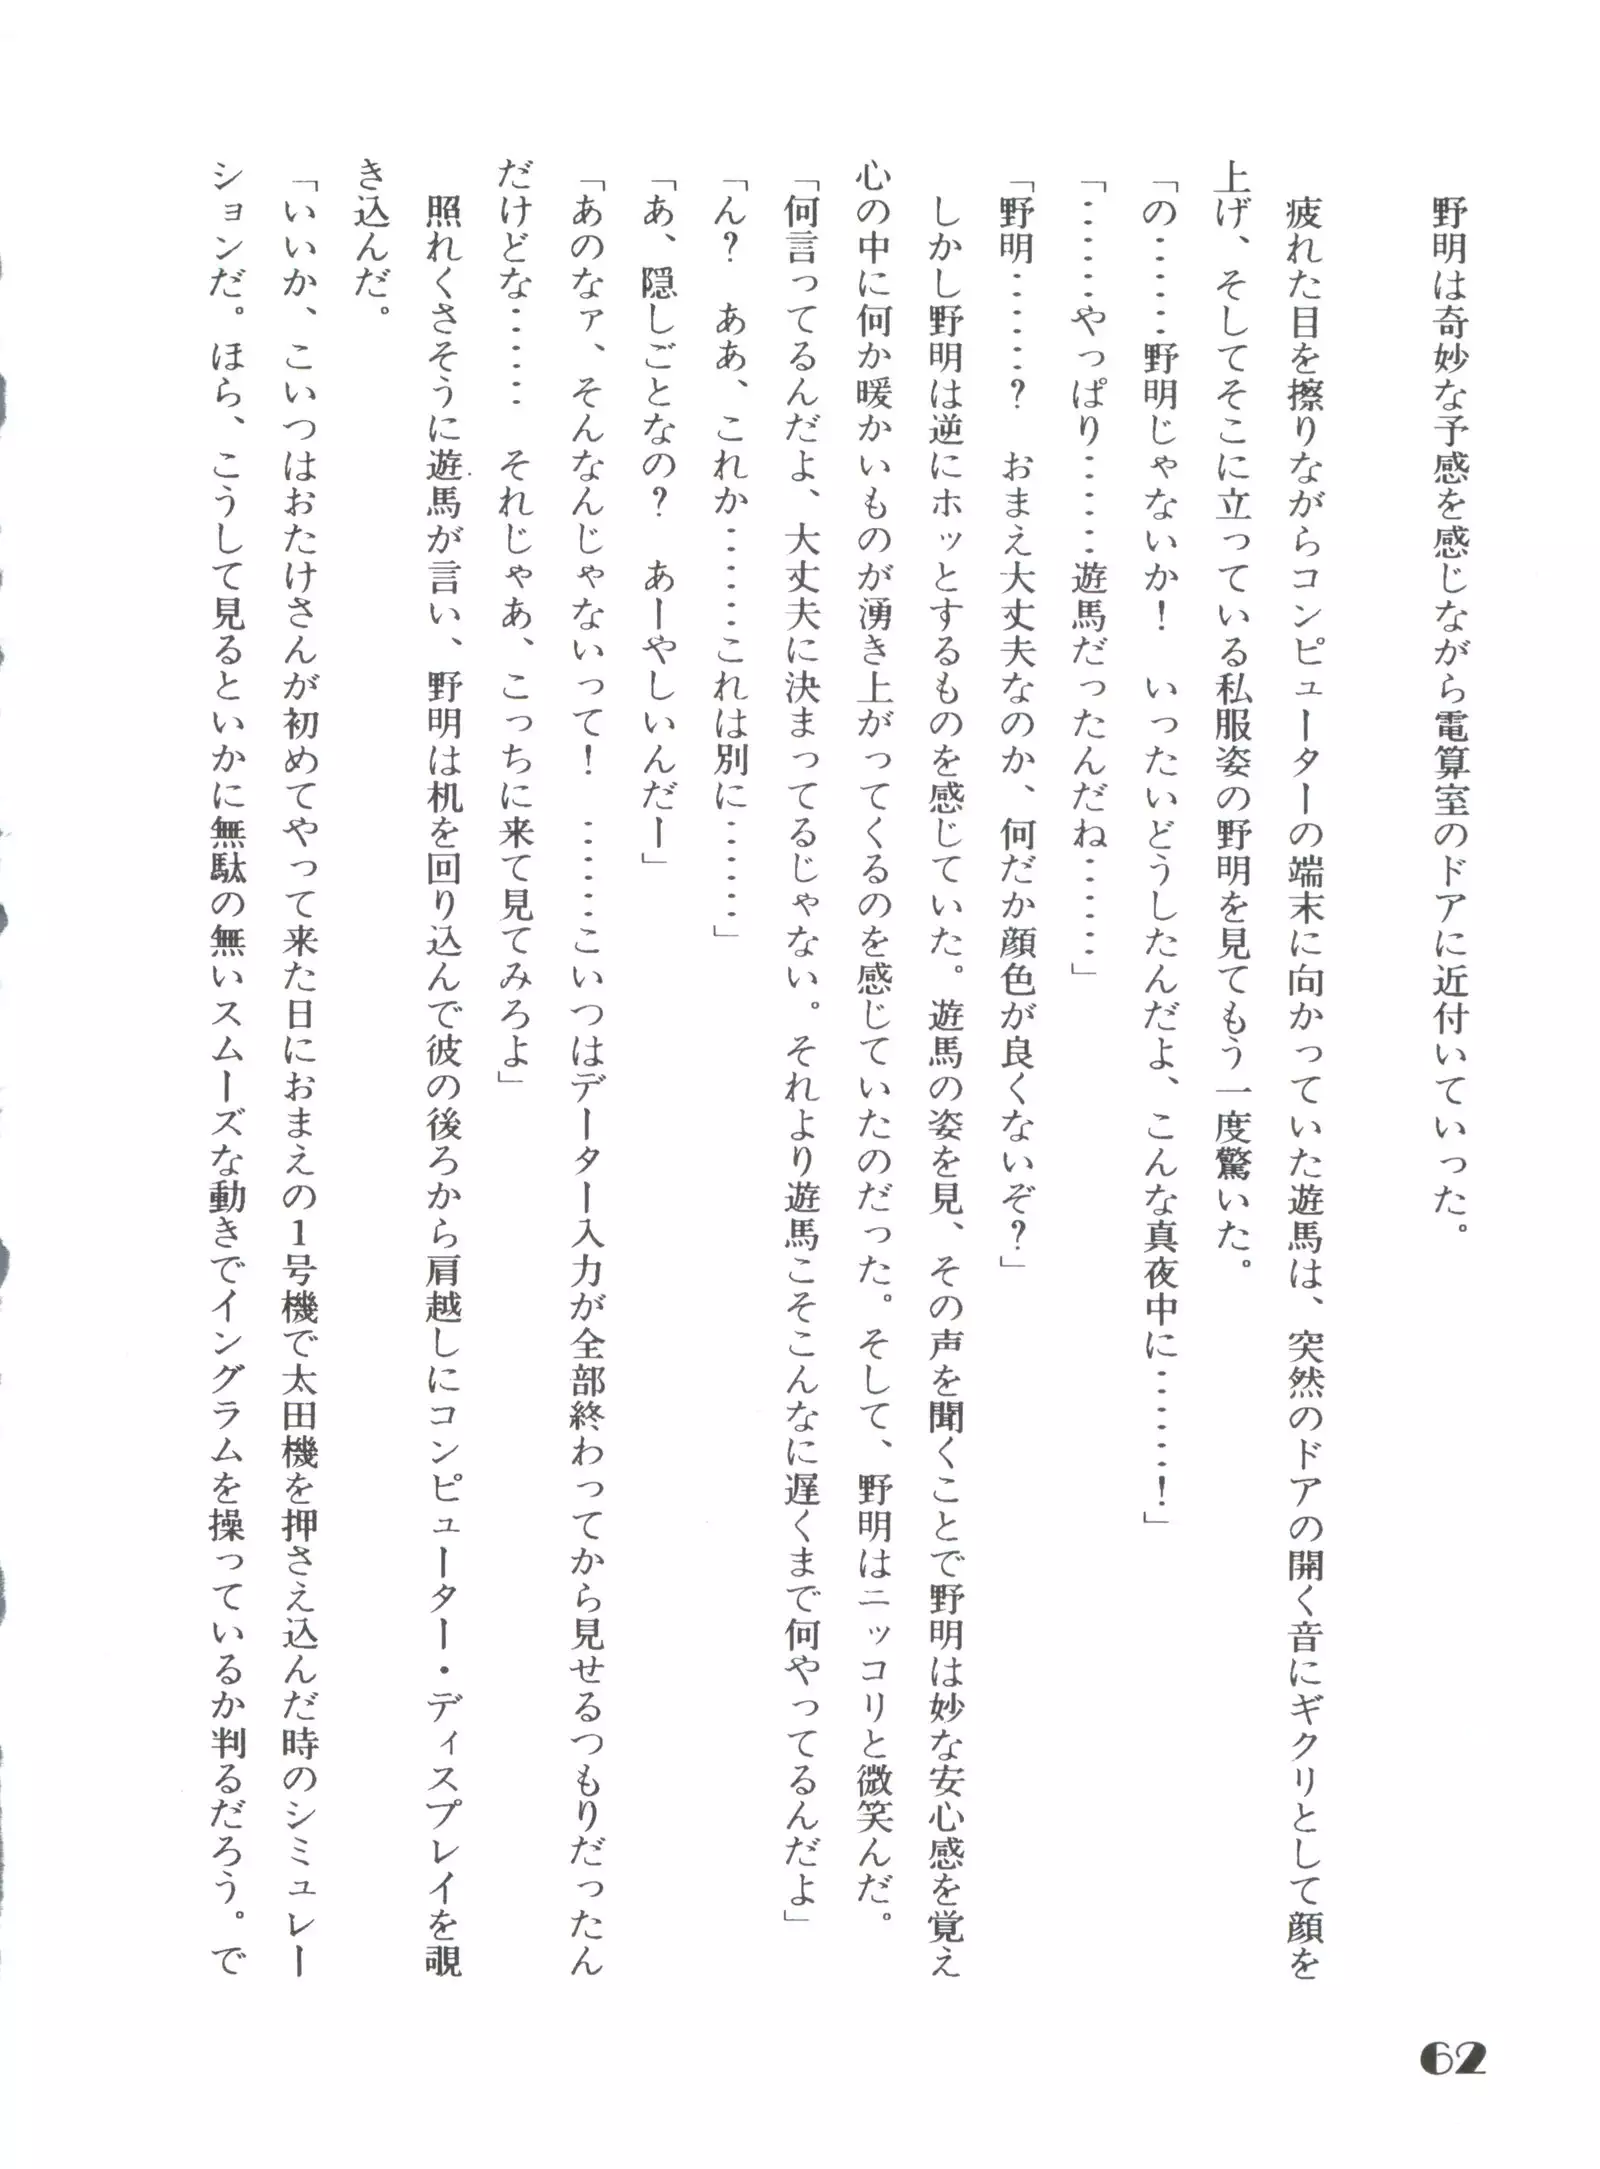 野明は奇妙な予感を感じながら電算室のドアに近付いていった。
疲れた目を擦りながらコンピューターの端末に向かっていた遊馬は、突然のドアの開く音にギクリとして顔を
上げ、そしてそこに立っている私服姿の野明を見てもう一度驚いた。
「の………野明じゃないか！　いったいどうしたんだよ、こんな真夜中に………！」
「………やっぱり………遊馬だったんだね………」
「野明………？　おまえ大丈夫なのか、何だか顔色が良くないぞ？」
しかし野明は逆にホッとするものを感じていた。遊馬の姿を見、その声を聞くことで野明は妙な安心感を覚え
心の中に何か暖かいものが湧き上がってくるのを感じていたのだった。そして、野明はニッコリと微笑んだ。
「何言ってるんだよ、大丈夫に決まってるじゃない。それより遊馬こそこんなに遅くまで何やってるんだよ」
「ん？　ああ、これか………これは別に………」
「あ、隠しごとなの？　あーやしいんだー」
「あのなァ、そんなんじゃないって！　………こいつはデーター入力が全部終わってから見せるつもりだったん
だけどな………　それじゃあ、こっちに来て見てみろよ」
照れくさそうに遊馬が言い、野明は机を回り込んで彼の後ろから肩越しにコンピューター・ディスプレイを覗
き込んだ。
「いいか、こいつはおたけさんが初めてやって来た日におまえの１号機で太田機を押さえ込んだ時のシミュレー
ションだ。ほら、こうして見るといかに無駄の無いスムーズな動きでイングラムを操っているか判るだろう。で
62